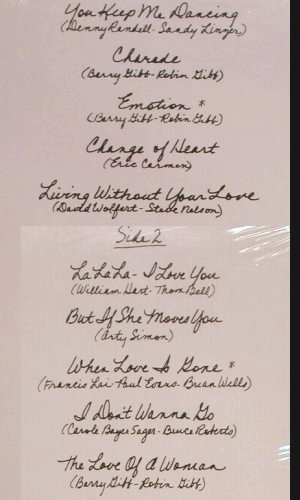 You Keep Me Dancing
(Denny Randell - Sandy Linzer)
Charade
(Barry Gibb - Robin Gibb)
Emotion *
(Barry Gibb - Robin Gibb)
Change of Heart
(Eric Carmen)
Living Without Your Love
(David Wolfert - Steve Nelson)
Side 2
La La La - I Love You
(William Hart - Thom Bell)
But If She Moves You
(Arty Simon)
When Love Is Gone *
(Francis Lai - Paul Evans - Brian Wells)
I Don't Wanna Go
(Carole Bayer Sager - Bruce Roberts)
The Love Of A Woman
(Barry Gibb - Robin Gibb)